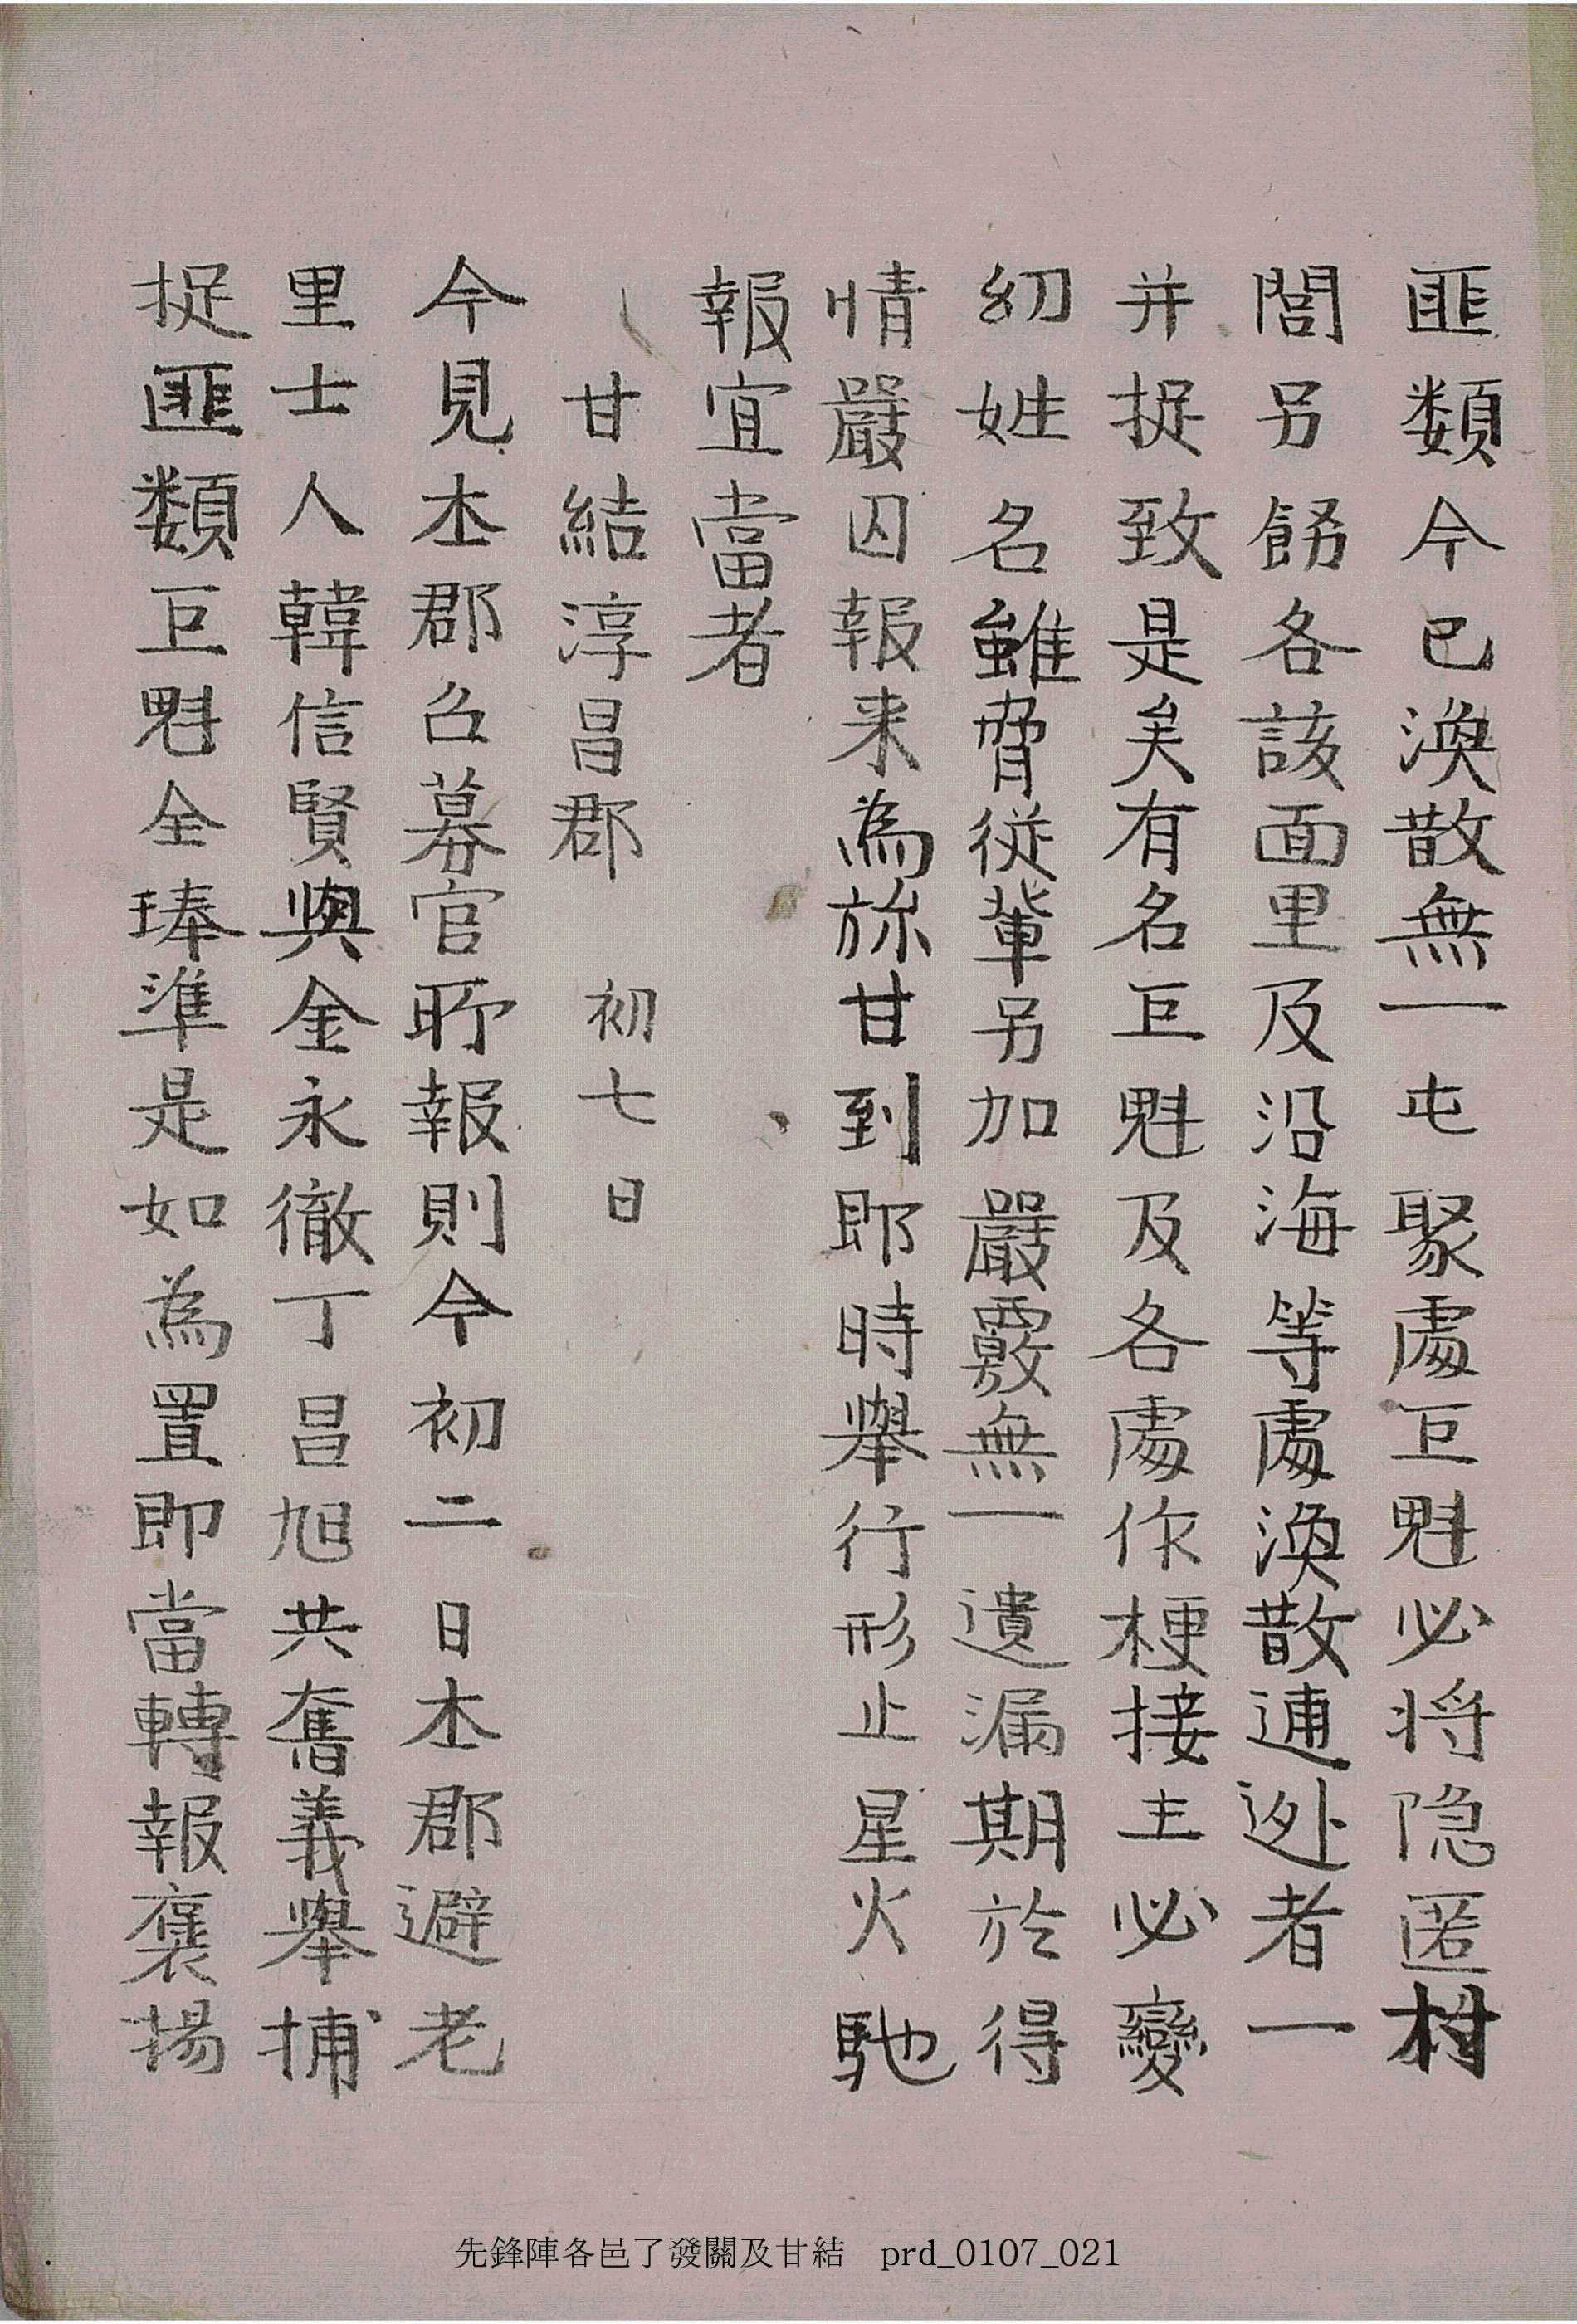 匪類今已渙散無一屯聚處巨魁必將隐匿村
閭另飭各該面里及沿海等處渙散逋迯者一
并捉致是矣有名巨魁及各處作梗接主必變
幻姓名雖脅從輩另加嚴覈無一遺漏期於得
情嚴囚報来為旀甘到卽時擧行形止星火馳
報宜當者
甘結淳昌郡 初七日
今見本郡召募官所報則今初二日本郡避老
里士人韓信賢與金永徹丁昌旭共奮義擧捕
捉匪類巨魁全琫準是如為置即當轉報褒揚
先鋒陣各邑了發關及甘結 prd_0107_021